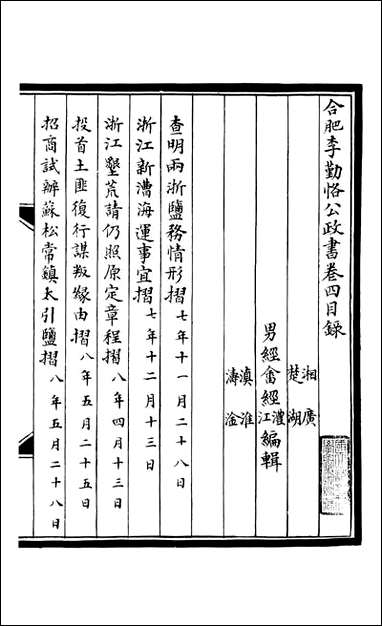 合肥李勤恪公政書卷四目錄
湘廣
楚湖
男經畬經澧江編輯
滇淮
濤淦
查明兩浙鹽務情形摺七年十一月二十八日
浙江新漕海運事宜摺七年十二月十三日
浙江墾荒請仍照原定章程摺八年四月十三日
投首土匪復行謀叛緣由摺八年五月二十五日
招商試辦蘇松常鎮太引鹽摺八年五月二十八日